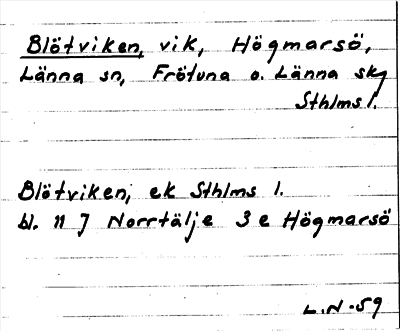 Blötviken, vik, Högmarsö,
Länna sn, Frötuna o. Länna skg
Sthlms l.
Blötviken, ek Sthlms l.
bl. 11 J Norrtälje 3 e Högmarsö
L.N-59